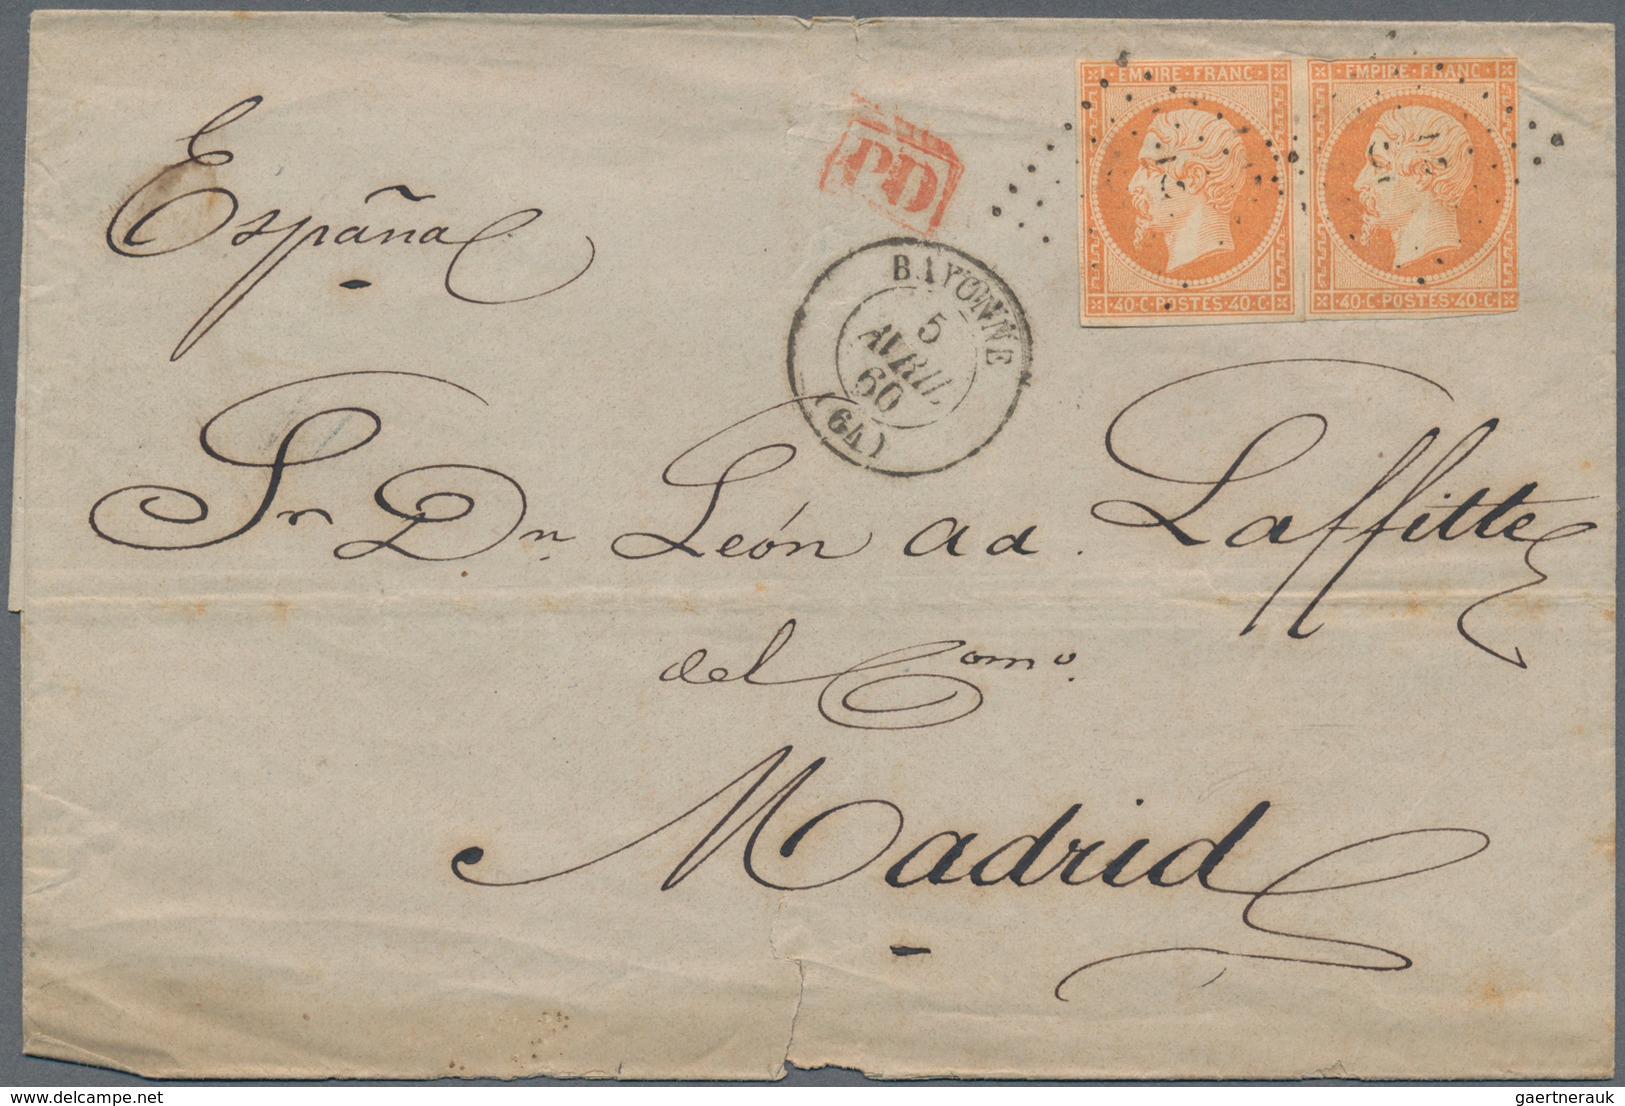 España
PD
EMPIRE·FRANC
40·C·POSTES·40·C
EMPIRE·FRANC
40·C·POSTES·40·C
BAYONNE
5
AVRIL
60
(64)
Sr Dn León ad. Laffitte
del Como.
Madrid
www.delcampe.net
gaertnerauk